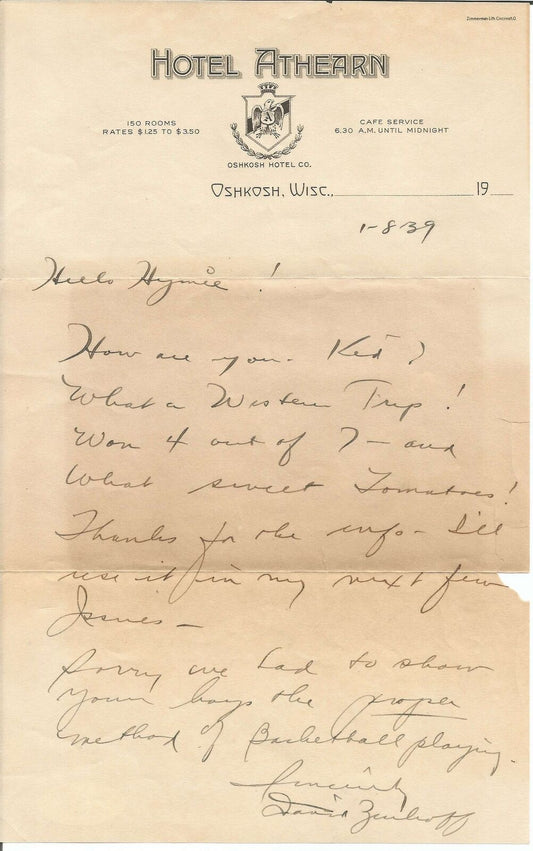 Zimmerman Lith. Cincinnati, O.
HOTEL ATHEARN
150 ROOMS
RATES $1.25 TO $3.50
CAFE SERVICE
6.30 A.M. UNTIL MIDNIGHT
A
OSHKOSH HOTEL CO.
OSHKOSH, WISC., 19
1-8-39
Hello Hymie!
How are you - Kid?
What a Western Trip!
Won 4 out of 7 - and
What sweet Tomatoes!
Thanks for the info - I'll
use it in my next few
Issues -
Sorry we had to show
your boys the proper
method of Basketball playing.
Sincerely
David Zinkoff